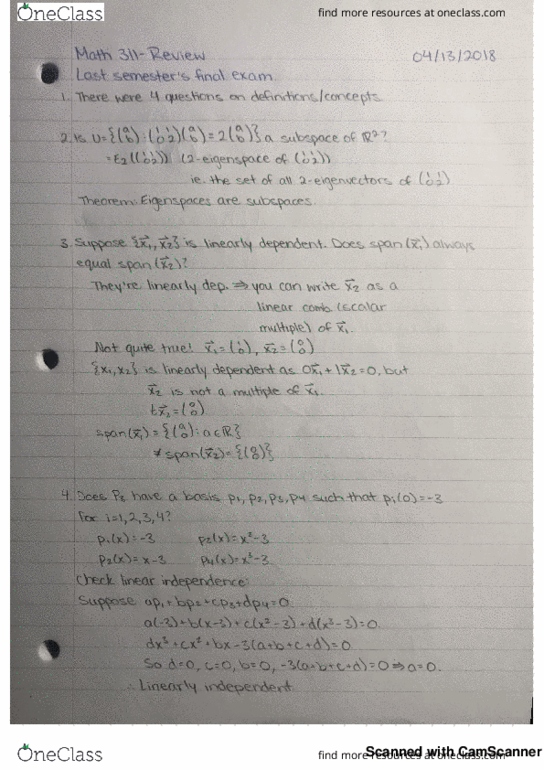 OneClass
find more resources at oneclass.com
Math 311-Review 04/13/2018
Last semester's final exam
1. There were 4 questions on definitions/concepts
2. Is U={(a b):(1 1 0 2)(a b)=2(a b)} a subspace of R²?
=E₂((1 1 0 2)) (2-eigenspace of (1 1 0 2))
ie. the set of all 2-eigenvectors of (1 1 0 2)
Theorem: Eigenspaces are subspaces.
3. Suppose {x⃗₁, x⃗₂} is linearly dependent. Does span(x⃗₁) always
equal span(x⃗₂)?
They're linearly dep. ⇒ you can write x⃗₂ as a
linear comb. (scalar
multiple) of x⃗₁.
Not quite true! x⃗₁=(1 0), x⃗₂=(0 0)
{x₁,x₂} is linearly dependent as 0x⃗₁+1x⃗₂=0, but
x⃗₂ is not a multiple of x⃗₁.
tx⃗₂=(0 0)
span(x⃗₁)={(a 0):a∈R}
≠span(x⃗₂)={(0 0)}
4. Does P₂ have a basis p₁, p₂, p₃, p₄ such that pᵢ(0)=-3
for i=1,2,3,4?
p₁(x)=-3 p₂(x)=x²-3
p₂(x)=x-3 p₄(x)=x³-3
Check linear independence:
Suppose ap₁+bp₂+cp₃+dp₄=0
a(-3)+b(x-3)+c(x²-3)+d(x³-3)=0
dx³+cx²+bx-3(a+b+c+d)=0
So d=0, c=0, b=0, -3(a+b+c+d)=0⇒a=0.
∴ Linearly independent
OneClass
find more resources at oneclass.com
Scanned with CamScanner